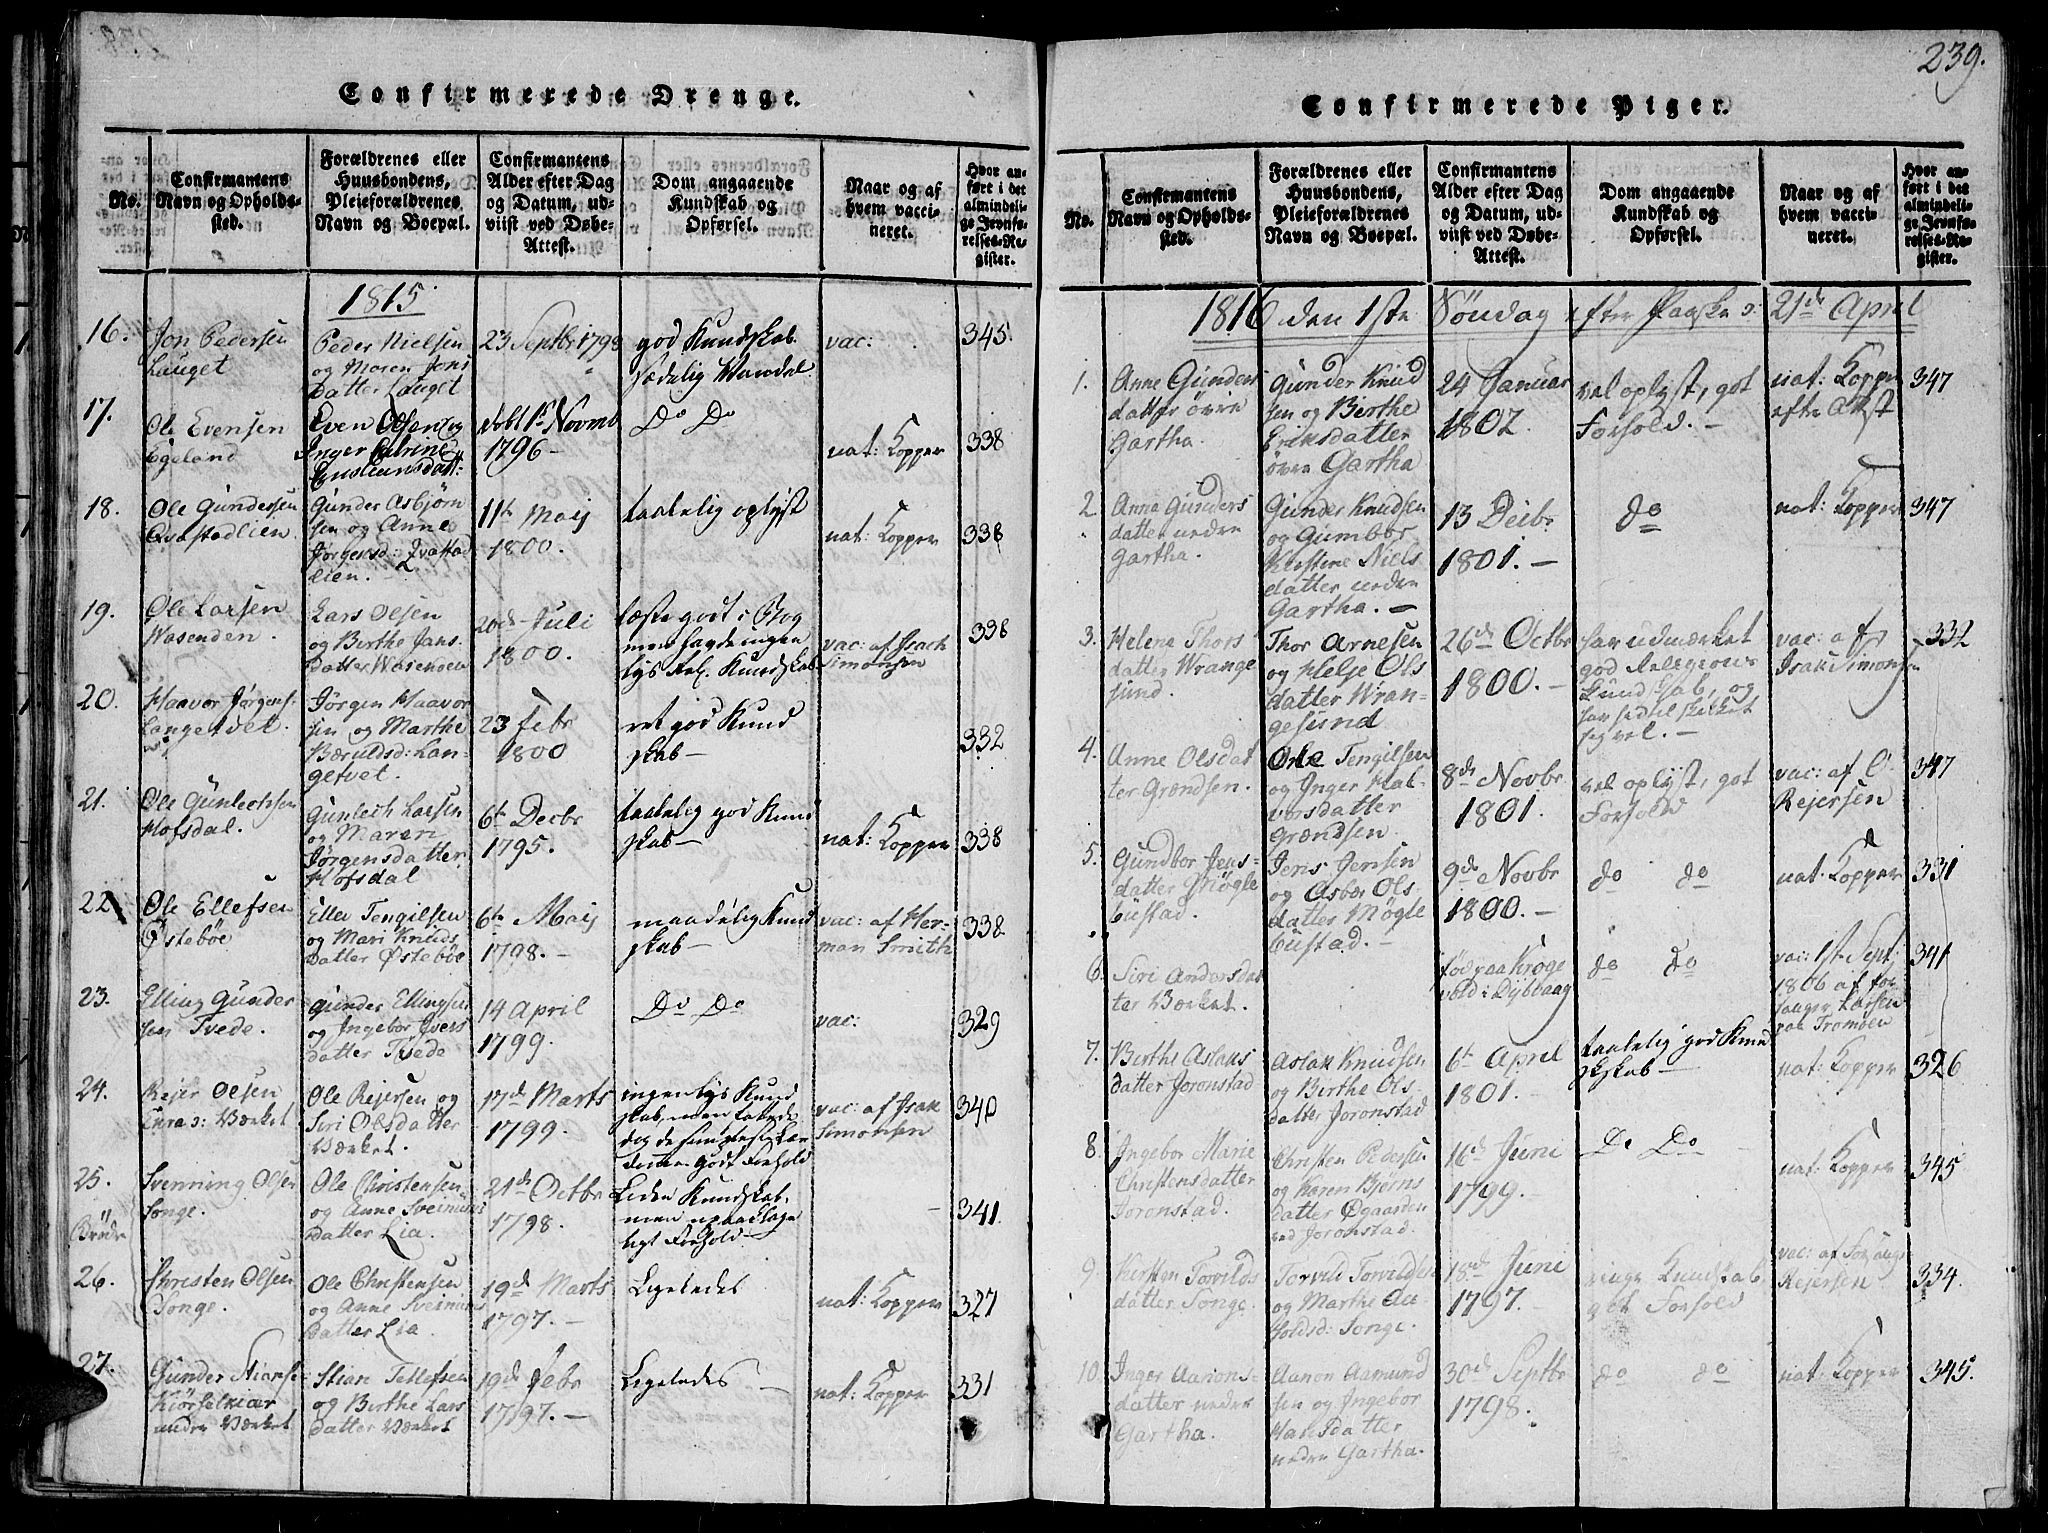 Confirmerede Drenge.
No.
Confirmantens Navn og Opholdssted.
Forældrenes eller Huusbondens, Pleieforældrenes Navn og Boepæl.
Confirmantens Alder efter Dag og Datum, udviist ved Døbe-Attest.
Dom angaaende Kundskab og Opførsel.
Naar og af hvem vaccineret.
Hvor anført i det almindelige Jevnførelses-Register.
1815
16.
Jon Pedersen
Lauget
Peder Nielsen
og Maren Jons
Datter Lauget
23 Septbr 1798
god Kundskab.
sædelig Vandel
vac:
345.
17.
Ole Evensen
Egeland
Even Olsen og
Inger Catrine
Novmb
1796 -
Do Do
nat: Kopper
338
18.
Ole Gundersen
Qvastadlien
Gunder Asbjørn
sen og Anne
Jørgensd:
lien.
11te Maij
1800.
taalelig oplyst
nat: Kopper
338
19.
Ole Larsen
Wasenden.
Lars Olsen
og Berthe Jans
datter Wasenden
20de Juli
1800.
læste godt i Bog
men havde ingen
lys Rel. Kundskab
vac: af Isach
Simonsen
338
20.
Haavor Jørgens:
Langetvet.
Jørgen Haavor
sen og Marthe
Bæruldsd: Lan-
getvet.
23 Febr
1800
ret god Kund
skab -
332
21.
Ole Gunlechsen
Hofsdal.
Gunlech Larsen
og Maren
Jørgensdatter
Hofsdal
6te Decbr
1795.
taalelig god Kund
skab -
nat: Kopper
338
22
Ole Ellefsen
Østebøe
Ellev Tengilsen
og Mari Knuds
Datter Østebøe
6te Maij
1798. -
maadelig Kund
skab -
vac: af Her-
man Smith
338
23.
Elling Gunder
sen Tvede.
Gunder Ellingsen
og Ingebor Ivers
datter Tvede
14 April
1799.
Do Do
vac:
329
24.
Rejer Olsen
Værket
Ole Rejersen og
Siri Olsdatter
Værket.
17de Marts
1799.
ingen lys Kund
skab, men lovede
godt Forhold
vac: af Isak
Simonsen
340
25.
Svenning Olsen
Songe.
Ole Christensen
og Anne Sveinung
Datter Lia.
21de Octbr
1798.
Liden Kundskab.
men upaaklage
ligt Forhold
341
Brødre
26.
Christen Olsen
Songe.
Ole Christensen
og Anne Sveinungs
Datter Lia
19de Marts
1797. -
Ligeledes
nat: Kopper
327
27.
Gunder Stianse
Kiørselkiær
under Værket
Stian Tellefsen
og Berthe Lars
datter Værket
19de Febr
1797. -
Ligeledes
nat: Kopper
331
239.
Confirmerede Piger.
No.
Confirmantens Navn og Opholdssted.
Forældrenes eller Huusbondens, Pleieforældrenes Navn og Boepæl.
Confirmantens Alder efter Dag og Datum, udviist ved Døbe-Attest.
Dom angaaende Kundskab og Opførsel.
Naar og af hvem vaccineret.
Hvor anført i det almindelige Jevnførelses-Register.
1816 den 1ste Søndag efter Paaske ɔ: 21de April
1.
Anne Gunders
datter øvre
Gartha.
Gunder Knud
sen og Berthe
Eriksdatter
øvre Gartha
24 Januar
1802.
vel oplyst, got
Forhold. -
nat: Kopper
efter Attest
347
2
Anna Gunders
datter nedre
Gartha.
Gunder Knudsen
og Gumbor
Kirstine Niels
datter nedre
Gartha. -
13 Decbr
1801. -
do
nat: Kopper
347
3.
Helene Thors
datter Wrange
sund.
Thor Arnesen
og Helje Ols
datter Wran-
gesund
26de Octbr
1800. -
har udmærket
god Religions
Kundskab, og
har hidtil skikket
sig vel. -
vac: af
Isak Simonsen
332
4.
Anne Olsdat
ter Grændsen.
Ole Tengilsen
og Inger Hal-
vorsdatter
Grændsen
8de Novbr
1801.
vel oplyst, got
Forhold
vac: af O.
Rejersen
347
5.
Gundbor Jens-
datter Møgle
bustad.
Jens Jensen
og Asber Ols-
datter Møgle
bustad. -
9de Novbr
1800. -
do do
nat. Kopper
331
6.
Siri Andersdat
ter Værket.
fød paa Krøge
vold i Dybvaag
do do
vac: 1st Sept:
1806 af for
sanger Larsen
paa Tromøen
341
7.
Berthe Aslaks
datter Joronstad
Aslak Knudsen
og Berthe Ols-
datter Joronstad
6te April
1801.
taalelig god Kund
skab -
nat: Kopper
326
8.
Ingebor Marie
Christensdatter
Joronstad.
Christen Pedersen
og Karen Bjørns
datter Øgaarden
ved Joronstad.
16de Juni
1799. -
Do Do
nat: Kopper
345
9.
Kirsten Torvilds
datter Songe.
Torvild Torvildsen
og Marthe Au-
voldsd: Songe.
18de Juni
1797. -
ringe Kundskab
got Forhold
vac: af Forsanger
Rejersen
334.
10.
Inger Aarons-
datter nedre
Gartha.
Aanon Aamund
sen og Ingebor
Hansdatter
nedre Gartha.
30de Septbr
1798.
do do
nat: Kopper
345.